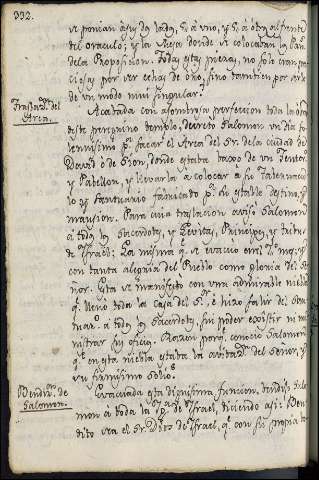 332.
se ponian à su lado, 5 à uno, y 5 à otro al frente
del oraculo; y la Mesa donde se colocaban los Panes
dela Proposicion. Todas estas piezas, no solo eran pre-
ciosas por ser echas de oro, sino tambien por serlo
de un modo mui singular.
Traslacon. del
Arca.
Acabada con assombrosa perfeccion toda la obra
deste peregrino templo, decretó Salomon un dia so-
lennissimo pa. sacar el Arca del Sr. dela ciudad de
David ò de Sion, donde estaba baxo de un Tentorio
y Pabellon, y llevarla à colocar a su Tabernacu-
lo y Santuario fabricado pa. su estable destino, y
mansion. Para cuia traslacion avisó Salomon
à todos los Sacerdotes, y Levitas, Principes, y tribus
de Israel: La misma qe. se executó
con tanta alegria del Pueblo como gloria del Se-
ñor. Esta se manifestó con una admirable niebla
qe. llenó toda la Casa del Sr. è hizo salir del San-
tuario à todos los Sacerdotes, sin poder existir ni mi-
nistrar su oficio. Razon porq. conocio Salomon
qe. en esta niebla estaba la autoridad del Señor, y
su firmissimo solio.
Bendicon. de
Salomon.
Evacuada esta dignissima funcion, bendijo Salo-
mon à toda la de Israel, diciendo assi: Ben-
dito sea el Sr. Dios de Israel, qe. con su propria